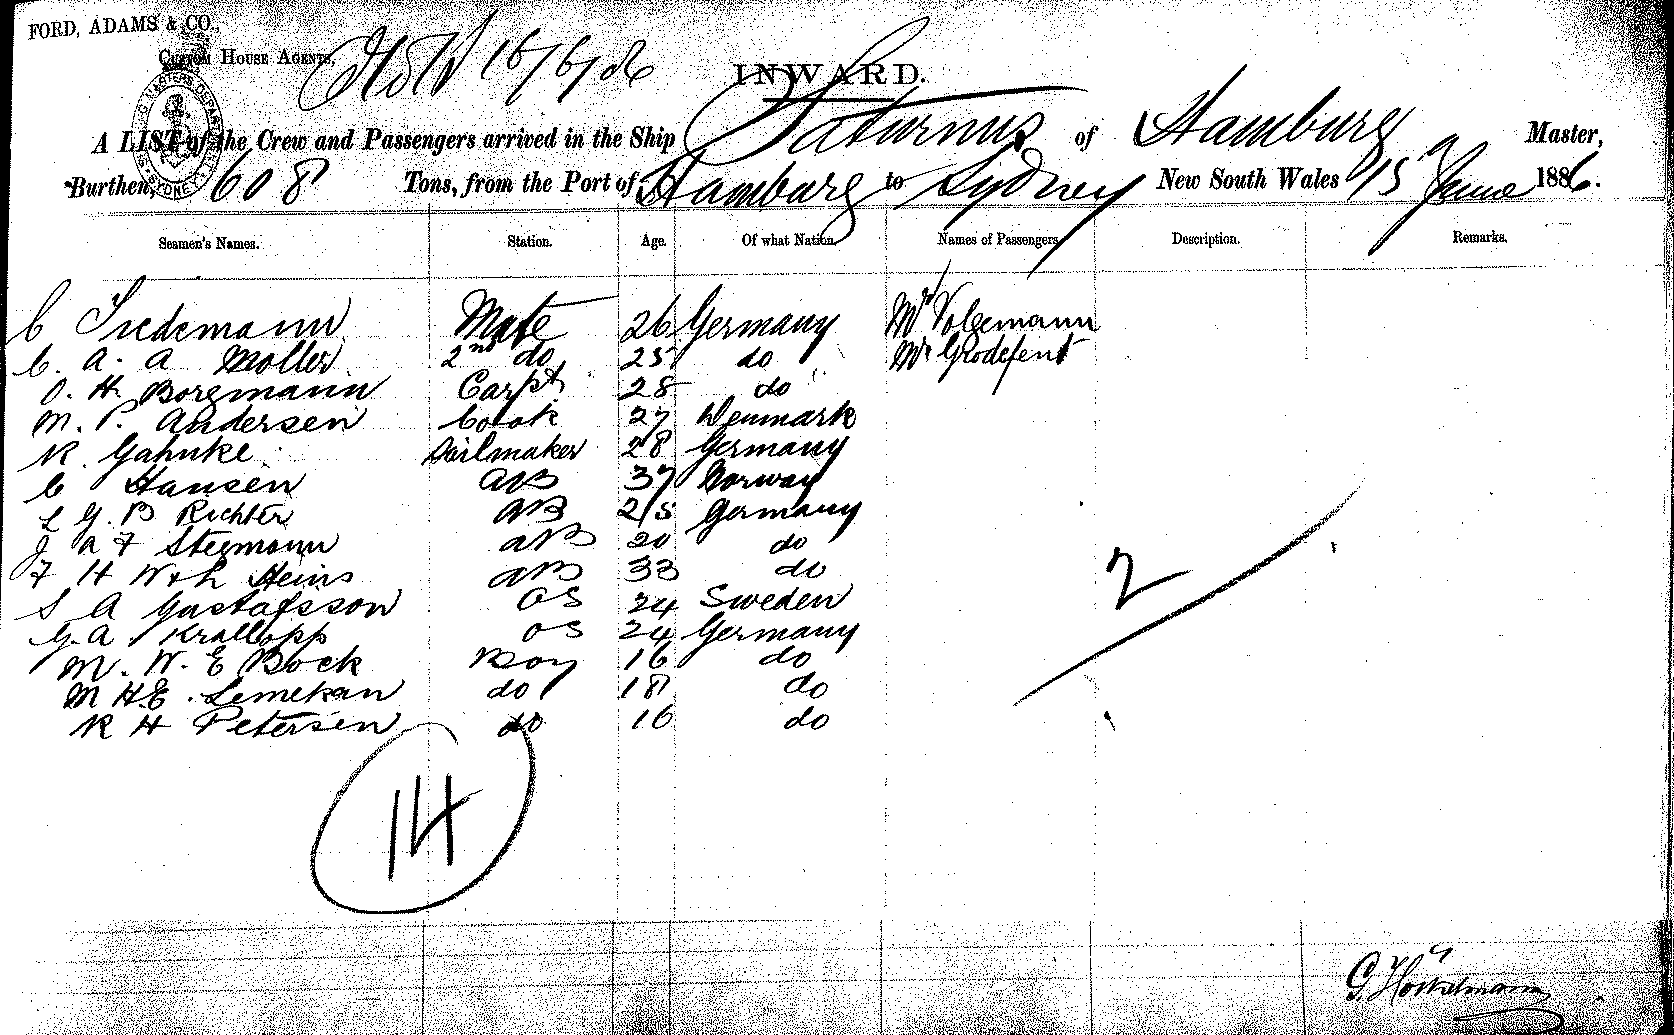 FORD, ADAMS & CO.,
CUSTOM HOUSE AGENTS,
16/6/86
INWARD.
A LIST of the Crew and Passengers arrived in the Ship Saturnus of Hamburg Master,
Burthen, 608 Tons, from the Port of Hamburg to Sydney New South Wales 15 June 1886.
Seamen's Names. Station. Age. Of what Nation. Names of Passengers Description. Remarks.
C Tiedemann Mate 26 Germany Mrs Volgemann
C. A. A Moller 2nd do 25 do Mr Grodefent
O. H. Borgmann Carpt 28 do
M. P. Andersen Cook 27 Denmark
R. Gahnke Sailmaker 28 Germany
C Hansen AB 37 Norway
L G. B Richter AB 25 Germany
J A F Stegmann AB 20 do
F H W & L Heins AB 33 do
S A Gustafsson OS 24 Sweden
G. A Krallopp OS 24 Germany
M. W. E Bock Boy 16 do
M H. E. Lemekan do 18 do
R H Petersen do 16 do
2
14